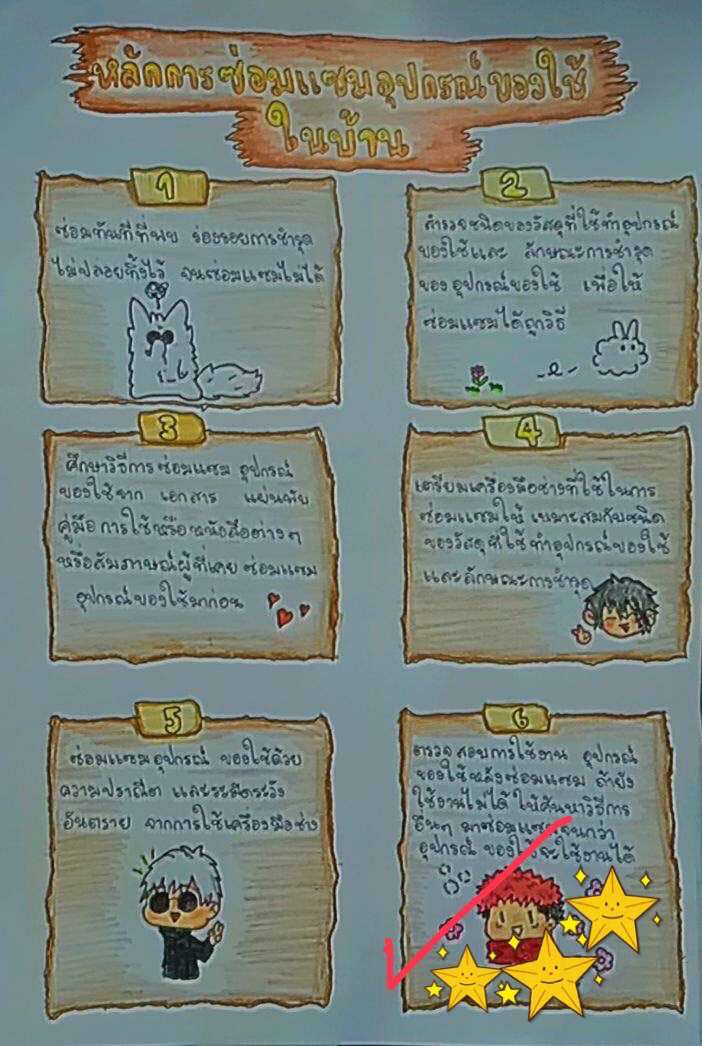 หลักการซ่อมแซมอุปกรณ์ของใช้
ในบ้าน
1
ซ่อมทันทีที่พบ ร่องรอยการชำรุด
ไม่ปล่อยทิ้งไว้ จนซ่อมแซมไม่ได้
2
สำรวจชนิดของวัสดุที่ใช้ทำอุปกรณ์
ของใช้และ ลักษณะการชำรุด
ของ อุปกรณ์ของใช้ เพื่อให้
ซ่อมแซมได้ถูกวิธี
3
ศึกษาวิธีการซ่อมแซม อุปกรณ์
ของใช้จาก เอกสาร แผ่นพับ
คู่มือ การใช้หรือหนังสือต่างๆ
หรือสัมภาษณ์ผู้ที่เคย ซ่อมแซม
อุปกรณ์ของใช้มาก่อน
4
เตรียมเครื่องมือช่างที่ใช้ในการ
ซ่อมแซมให้ เหมาะสมกับชนิด
ของวัสดุ ที่ใช้ ทำอุปกรณ์ของใช้
และลักษณะการชำรุด
5
ซ่อมแซมอุปกรณ์ ของใช้ด้วย
ความปราณีต และระมัดระวัง
อันตราย จากการใช้เครื่องมือช่าง
6
ตรวจสอบการใช้งาน อุปกรณ์
ของใช้หลังซ่อมแซม ถ้ายัง
ใช้งานไม่ได้ ให้ค้นหาวิธีการ
อื่นๆ มาซ่อมแซมจนกว่า
อุปกรณ์ ของใช้จะใช้งานได้